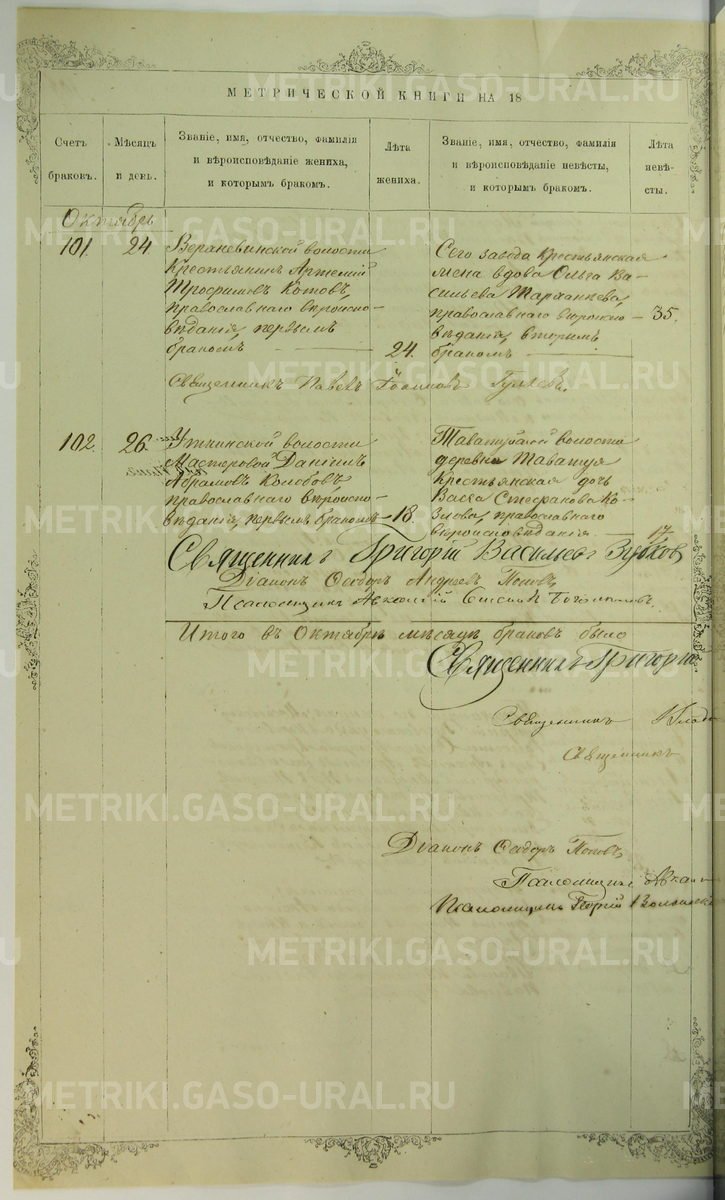 МЕТРИЧЕСКОЙ КНИГИ НА 18
Счетъ браковъ.
Мѣсяцъ и день.
Званіе, имя, отчество, фамилія и вѣроисповѣданіе жениха, и которымъ бракомъ.
Лѣта жениха.
Званіе, имя, отчество, фамилія и вѣроисповѣданіе невѣсты, и которымъ бракомъ.
Лѣта невѣсты.
Октябрь
101.
24.
волости
Крестьянинъ Артемій
Трофимовъ Котовъ,
православнаго вѣроиспо-
вѣданія, первымъ
бракомъ
24.
Сего завода крестьянская
жена вдова Ольга Ва-
сильева
православнаго вѣроиспо-
вѣданія, вторымъ
бракомъ
35.
Священникъ Павелъ Іоанновъ Гуляевъ.
102.
26.
Уткинской волости
Мастеровой Даніилъ
Абрамовъ Колобовъ,
православнаго вѣроиспо-
вѣданія, первымъ бракомъ
18.
Таватуйской волости
деревни Таватуя
крестьянская дочь
Васса Стефанова Ко-
злова, православнаго
вѣроисповѣданія
17.
Священникъ Григорій Васильевъ
Діаконъ Ѳедоръ Андреевъ Поповъ,
Псаломщикъ
Итого въ Октябрѣ мѣсяцѣ браковъ было
Священникъ Григорій
Священникъ Влад
Священникъ
Діаконъ Ѳедоръ Поповъ,
Псаломщикъ
Псаломщикъ Георгій
METRIKI.GASO-URAL.RU